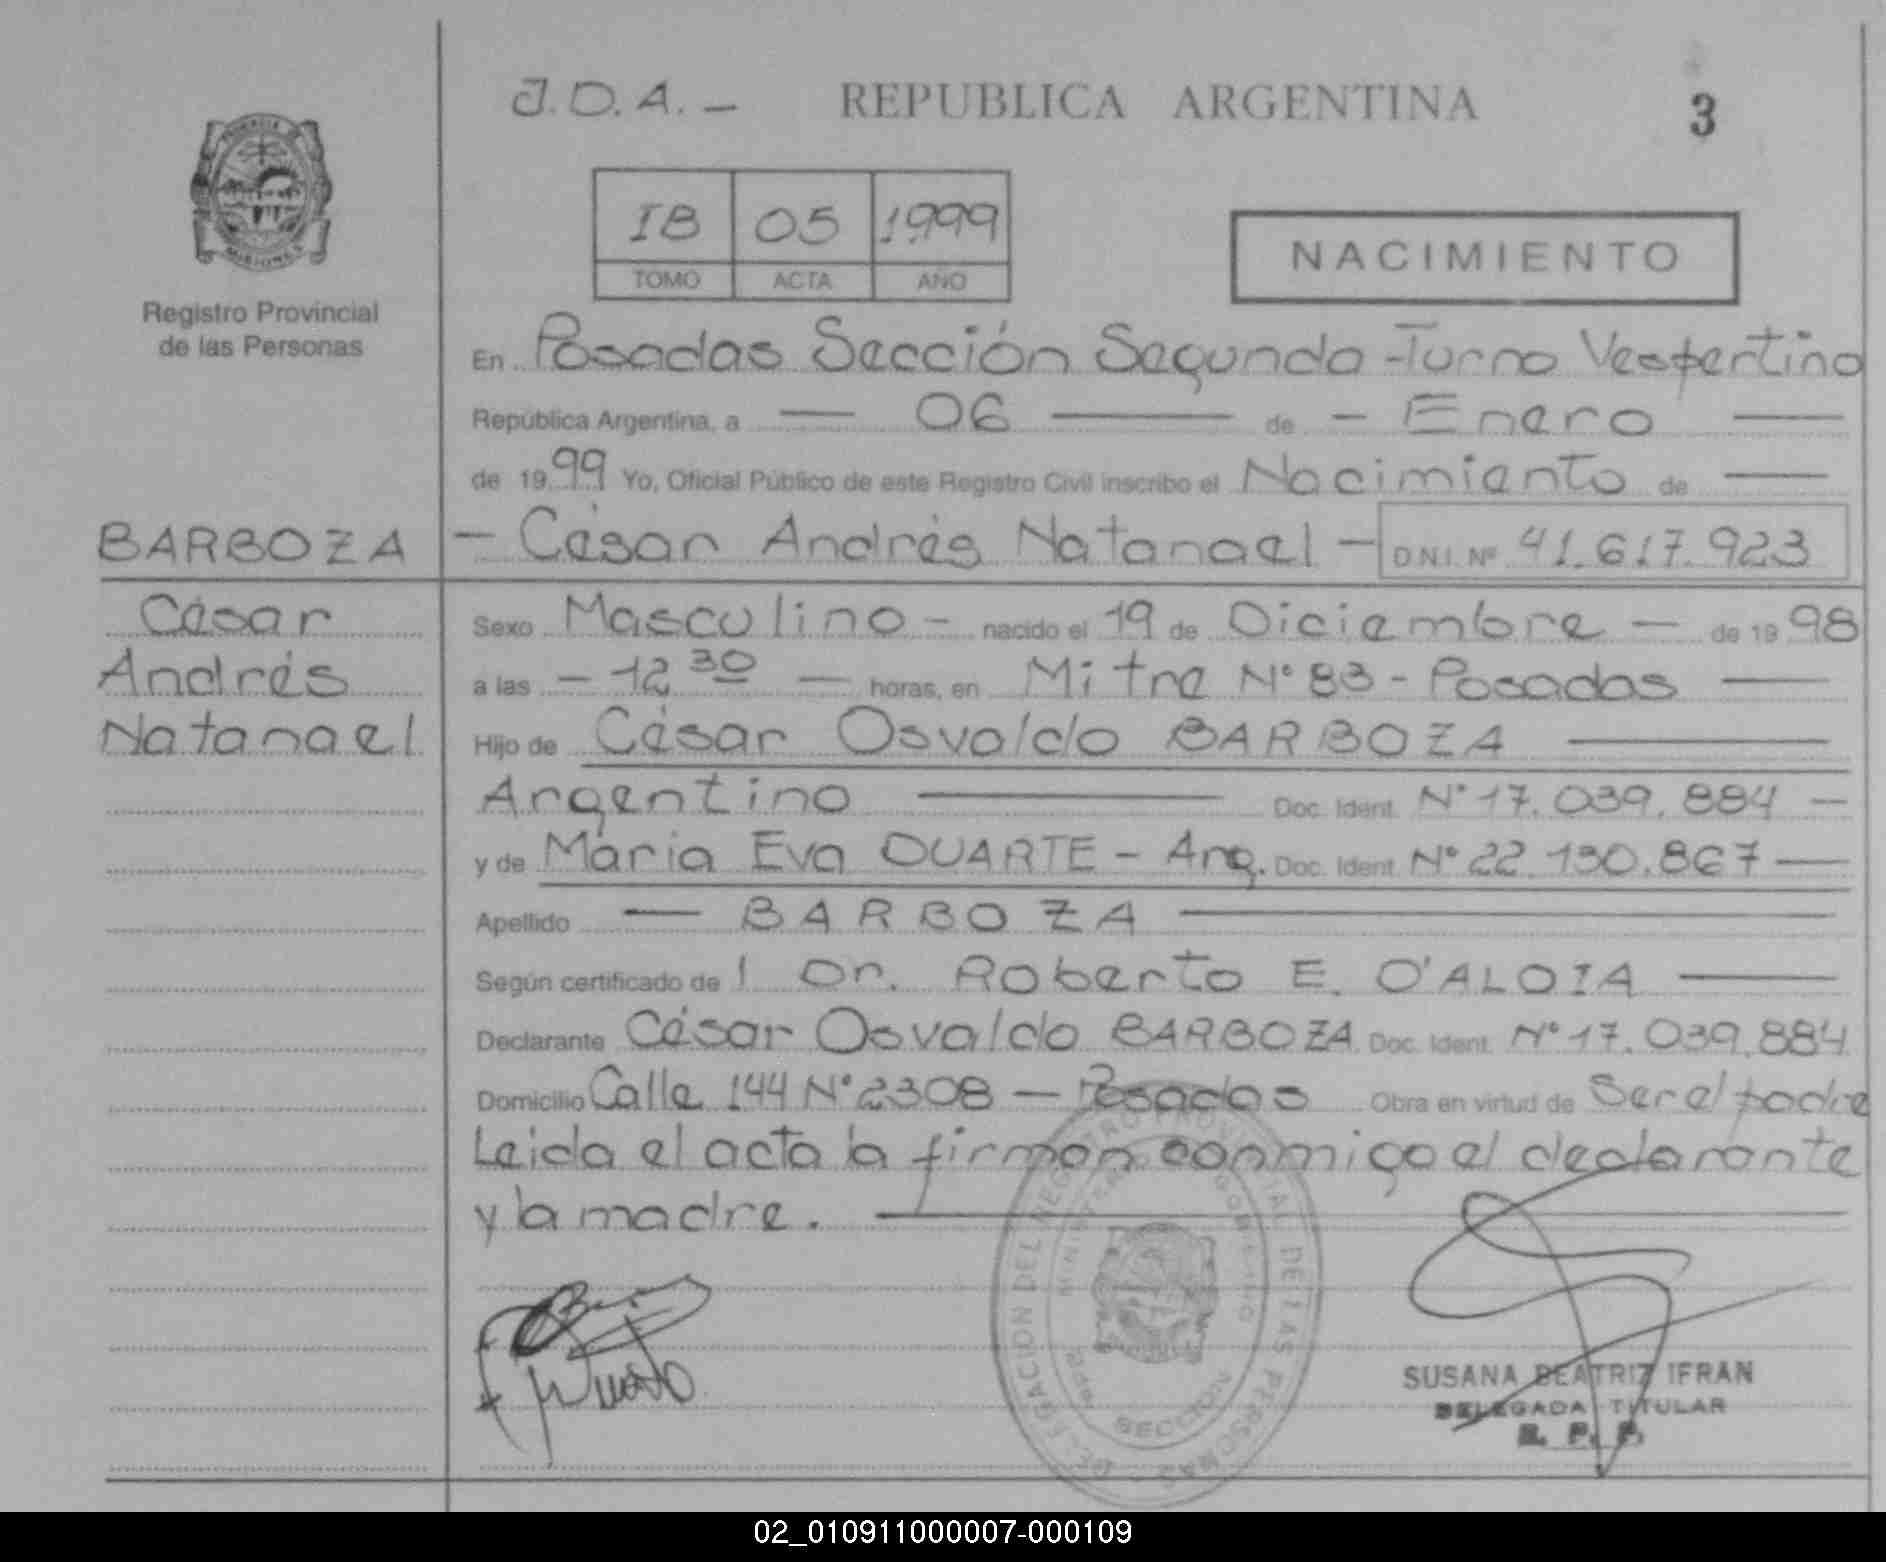 J.D.A. - REPUBLICA ARGENTINA 3
IB 05 1999
TOMO ACTA AÑO
NACIMIENTO
MISIONES
Registro Provincial
de las Personas
En Posadas Sección Segunda - Turno Vespertino
República Argentina, a — 06 — de - Enero —
de 1999 Yo, Oficial Público de este Registro Civil inscribo el Nacimiento de —
BARBOZA - César Andrés Natanael - D.N.I. Nº 41.617.923
César
Andrés
Natanael
Sexo Masculino - nacido el 19 de Diciembre - de 1998
a las - 12 30 — horas, en Mitre Nº 83 - Posadas —
Hijo de César Osvaldo BARBOZA —
Argentino — Doc. Ident. Nº 17.039.884 —
y de María Eva DUARTE - Arg. Doc. Ident. Nº 22.130.867 —
Apellido — BARBOZA —
Según certificado del Dr. Roberto E. D'ALOIA —
Declarante César Osvaldo BARBOZA Doc. Ident. Nº 17.039.884
Domicilio Calle 144 Nº 2308 — Posadas Obra en virtud de Ser el padre
Leida el acta la firman conmigo el declarante
y la madre. —
DELEGACION DEL REGISTRO PROVINCIAL DE LAS PERSONAS
SECCION
SUSANA BEATRIZ IFRAN
DELEGADA TITULAR
R. P. P.
02_010911000007-000109